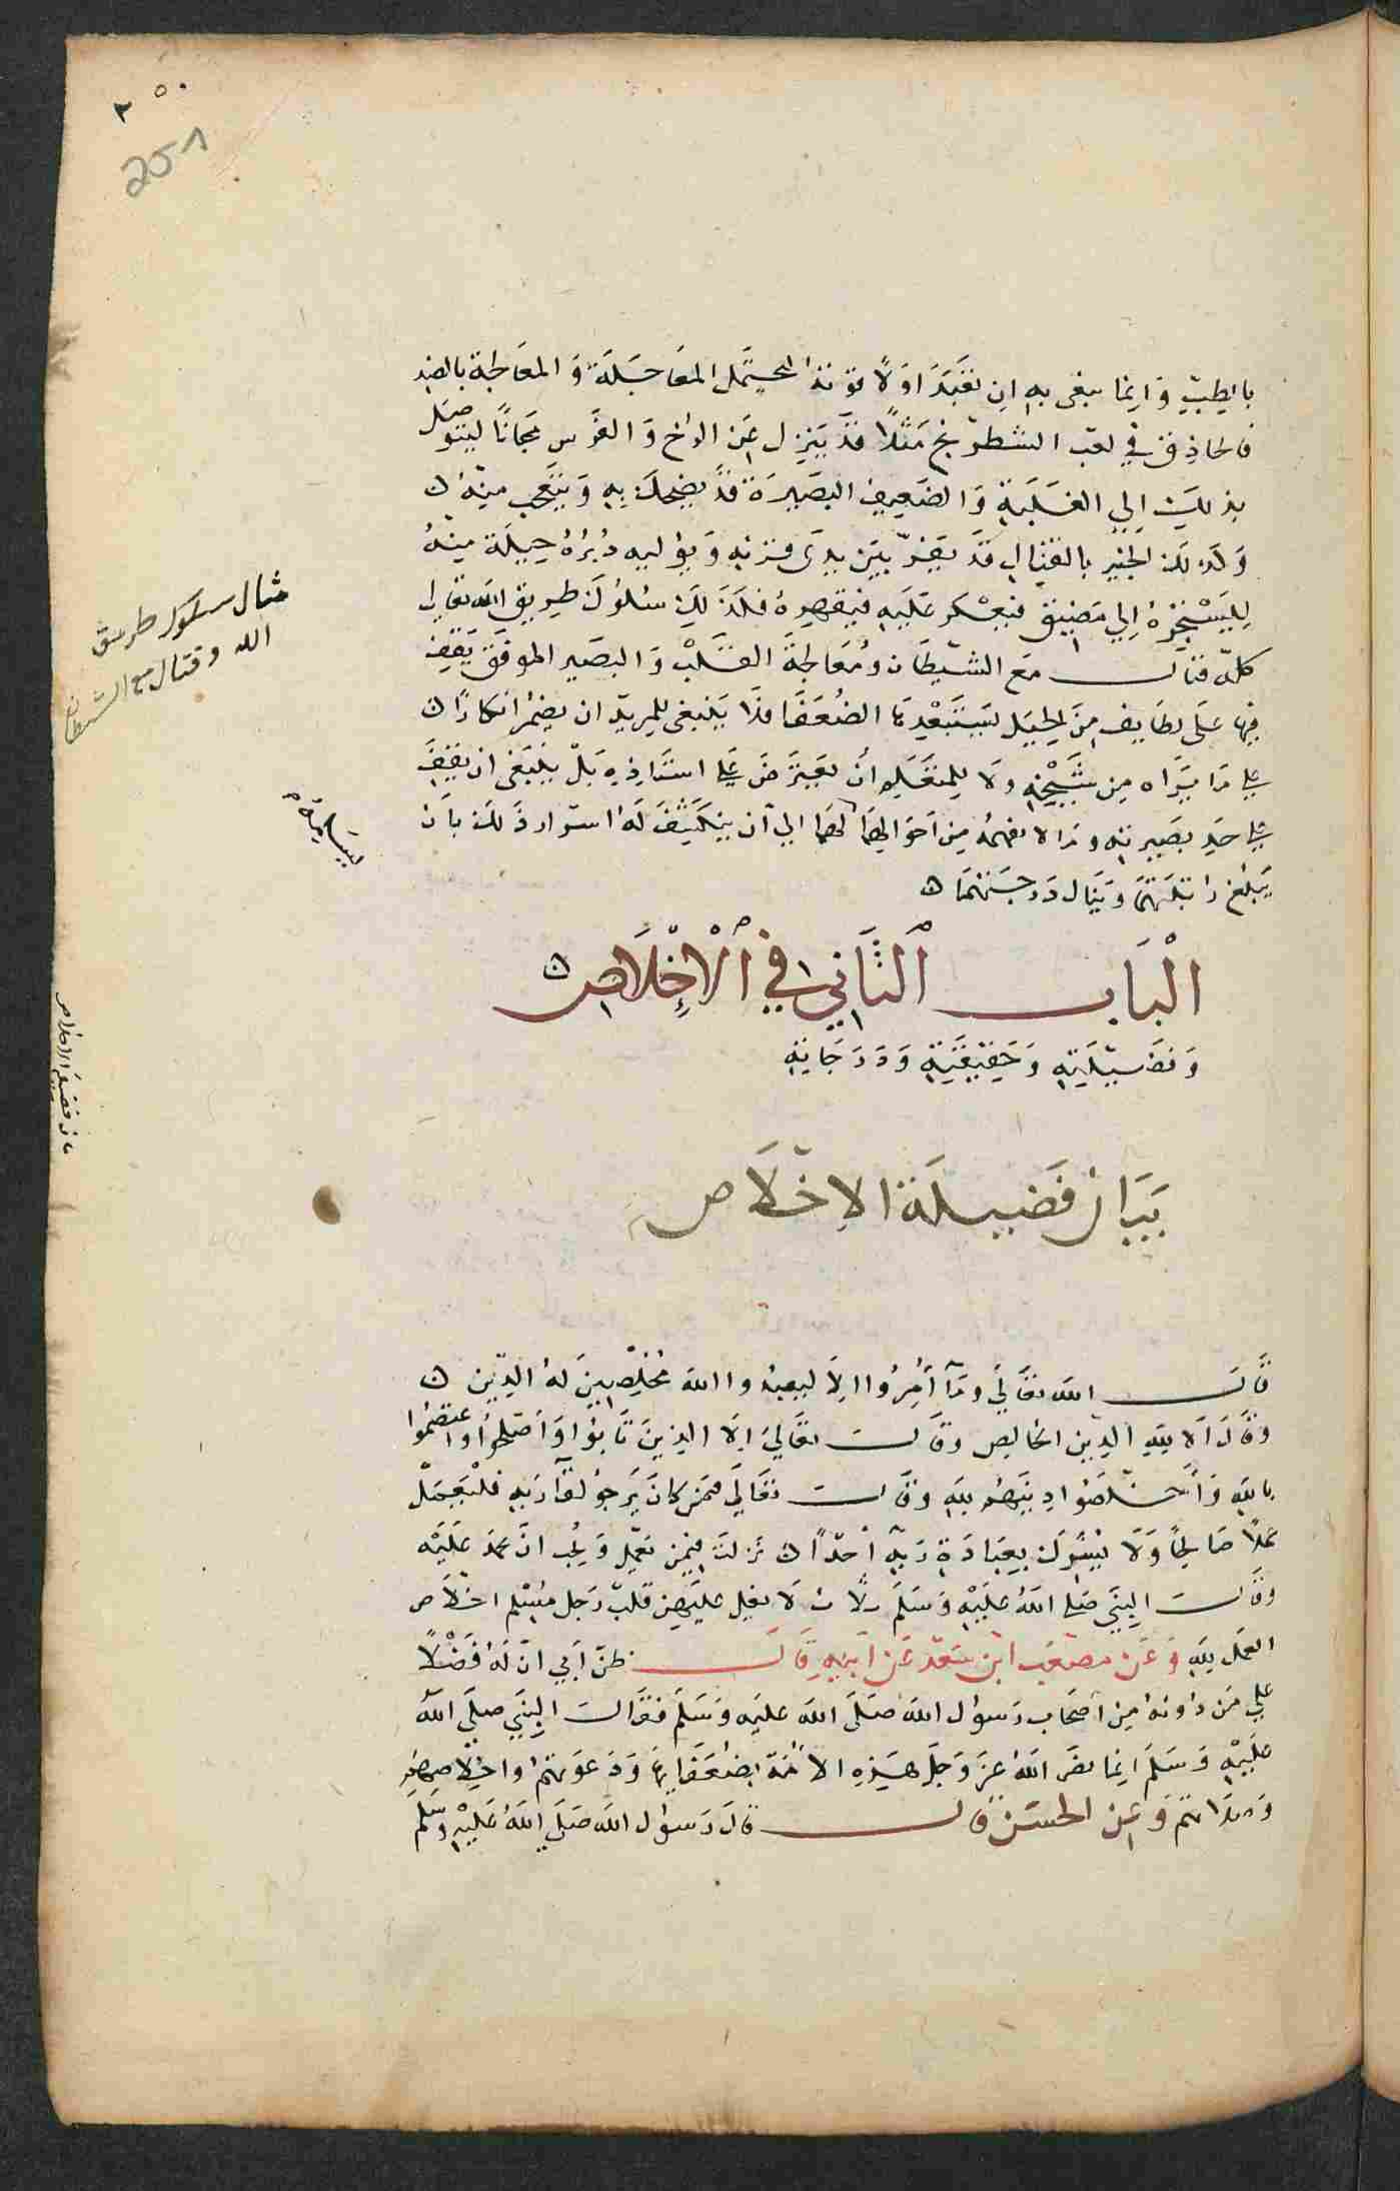 ٢٥٠
201
بالطب وَانما يبغى به ان تعَبَد اوّلاً قوته ليحتمَل المعَاجَلَة وَ المعَالجة بالضد
فالحاذق في لعب الشطرنج مَثلاً قد يَنزل عَن الرخ وَ الفرَس مجانًا ليتوصَل
بذلك الي الغلبَة وَ الضعيف البصَيرة قد يضحك به وَ يتعجب منه ن
وَكذلك الخبير بالقتال قد يفرّ بين يدى قرنه وَ يوليه دُبُره حِيلَة منهُ
ليسْتجرّهُ اِلي مَضيق فيعْكر عَليه فيقهره فكذَلك سُلوك طريق الله تعالى
كله قتال مَع الشيطان وُمعَالجة القلبْ وَ البصَير الموفق يَقف
فيها عَلى لطايف مِنَ الحيَل يستَبْعدهَا الضُعَفَا فلا يَنبغى للمريد ان يضمر انكارًا ن
علي مَا يَرَاه مِن شَيْخه ولَا للمتعَلم انْ يعتَرضَ علي استَاذه بَلْ يَنبَغى ان يقف
علي حَد بصَيرته ومَا لا يفهمهُ مِن احَوالهمَا الي ان ينكَشفَ لهُ اسرار ذَلك بان
يَبلغ رتبَتهمَا وَ يَنَال دَرجَتهمَا ن
مثال سلوك طريق
الله وقتال مع الشيطان
الْبَاب الثَّانِي فِي الْإِخْلَاصِ ن
وَ فضَيلَتِه وَ حَقيقَتِه وَدَرَجَاتِه
بيان فضيلة الاخلاص
بَيَان فَضيلَة الاِخْلَاص
قَالَ الله تعَالَى ومَا أمِرُوا الاَ ليعبدُوا الله مُخلِصِينَ لهُ الدّين ن
وقَالَ اَلَا للهِ الدّين الخالِص وقَالَ تعَالى اِلَا الذِينَ تَابُوا وَ اَصْلحُوا وَاعتصمُوا
باللهِ وَأخلصُوا دِينَهُم للهِ وقَالَ تعَالَى فمَن كانَ يَرجُو لقَآ رَبهِ فلْيَعْمَلْ
عمَلاً صَالحًا وَلَا يُشركْ بعِبَادَةِ رَبهِ أحَدًا ن نزلت فيمن يعَمل وَيحُب انْ يحمَد عَلَيْه
وقَالَ النبَي صَلى اللهُ عَليْهِ وَسَلمَ ثلاث لَا يغل عليهن قلبْ رَجل مُسْلم اخلَاص
العمَل للهِ وَ عَن مصْعَب ابْن سَعد عَن اَبيهِ قَالَ ظنّ اَبي انّ لهُ فَضْلاً
على مَن دُونهُ مِن اَصحَاب رَسول الله صَلَى الله عَليه وَسَلمَ فقَالَ النبَي صَلى اللهُ
عَليْهِ وَسَلمَ انما نصَر اللهُ عزَ وَجلَ هَذهِ الامّة بضعَفَايهَا وَدَعَوتهمْ واخلاصهم
وَصَلَاتهم وَ عَن الحسَن قَالَ قالَ رَسول الله صَلَى اللهُ عَليْهِ وَسَلمَ